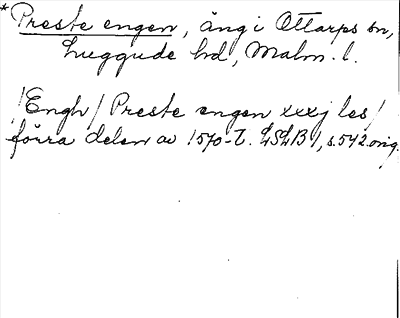 * Preste engen, äng i Ottarps sn,
Luggude hd, Malm. l.
/Engh/ Preste engen xxxj les/
förra delen av 1570-t. LSLB 1, s. 542 orig.